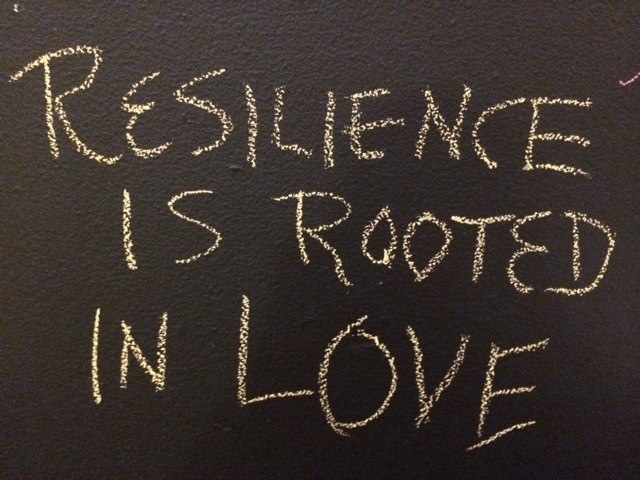 RESILIENCE
IS ROOTED
IN LOVE